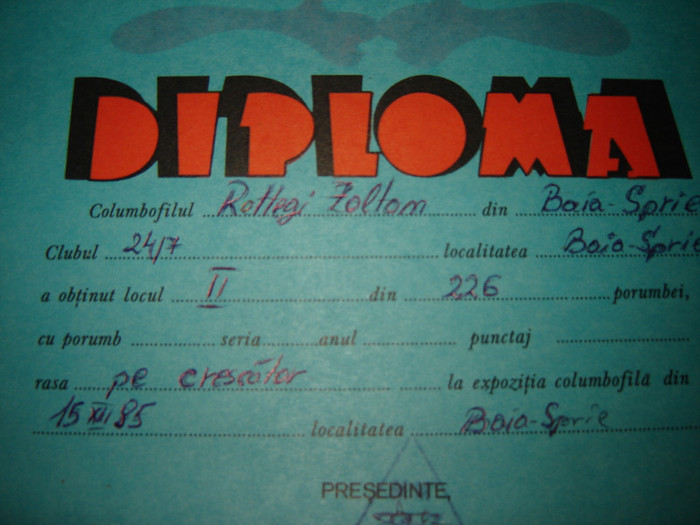 DIPLOMA
Columbofilul Rettegi Zoltan din Baia-Sprie
Clubul 24/7 localitatea Baia-Sprie
a obținut locul II din 226 porumbei,
cu porumb seria anul punctaj
rasa pe crescător la expoziția columbofilă din
15 XII 85 localitatea Baia-Sprie
PREȘEDINTE,